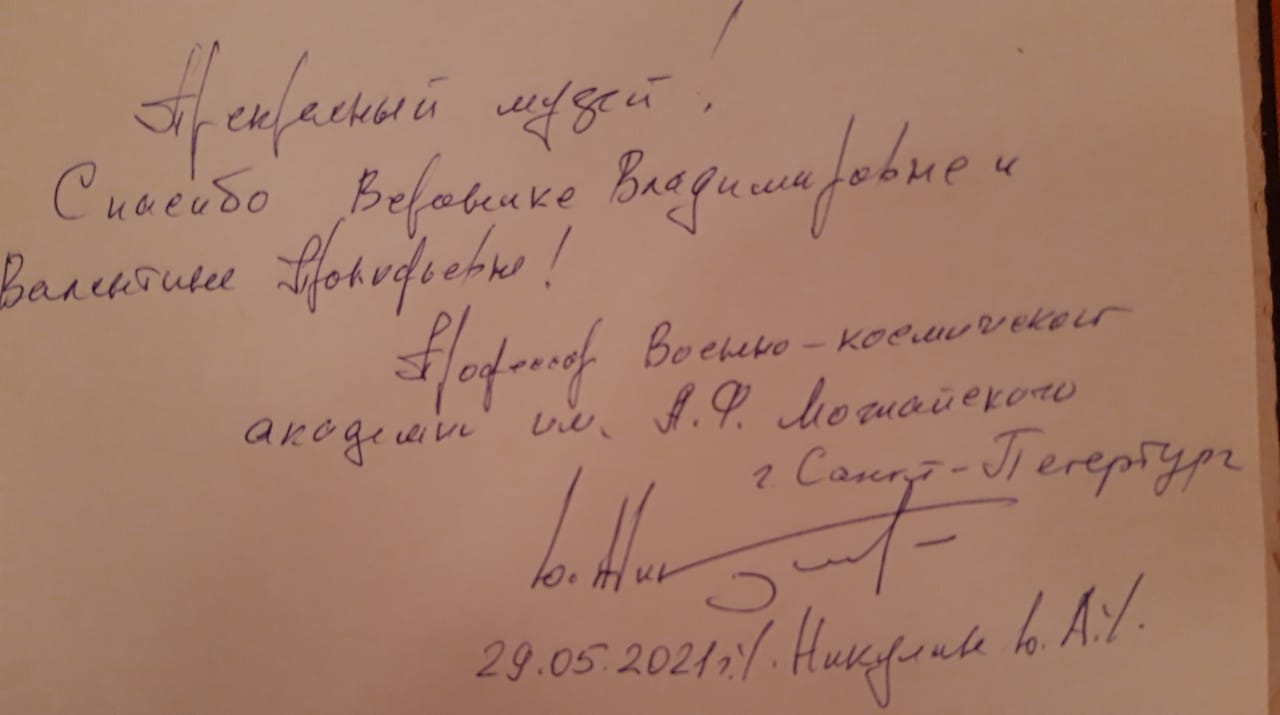 Прекрасный музей!
Спасибо Веронике Владимировне и
Валентине Прокофьевне!
Профессор Военно-космической
академии им. А.Ф. Можайского
г. Санкт-Петербург
29.05.2021г./. Никулин Ю.А./.